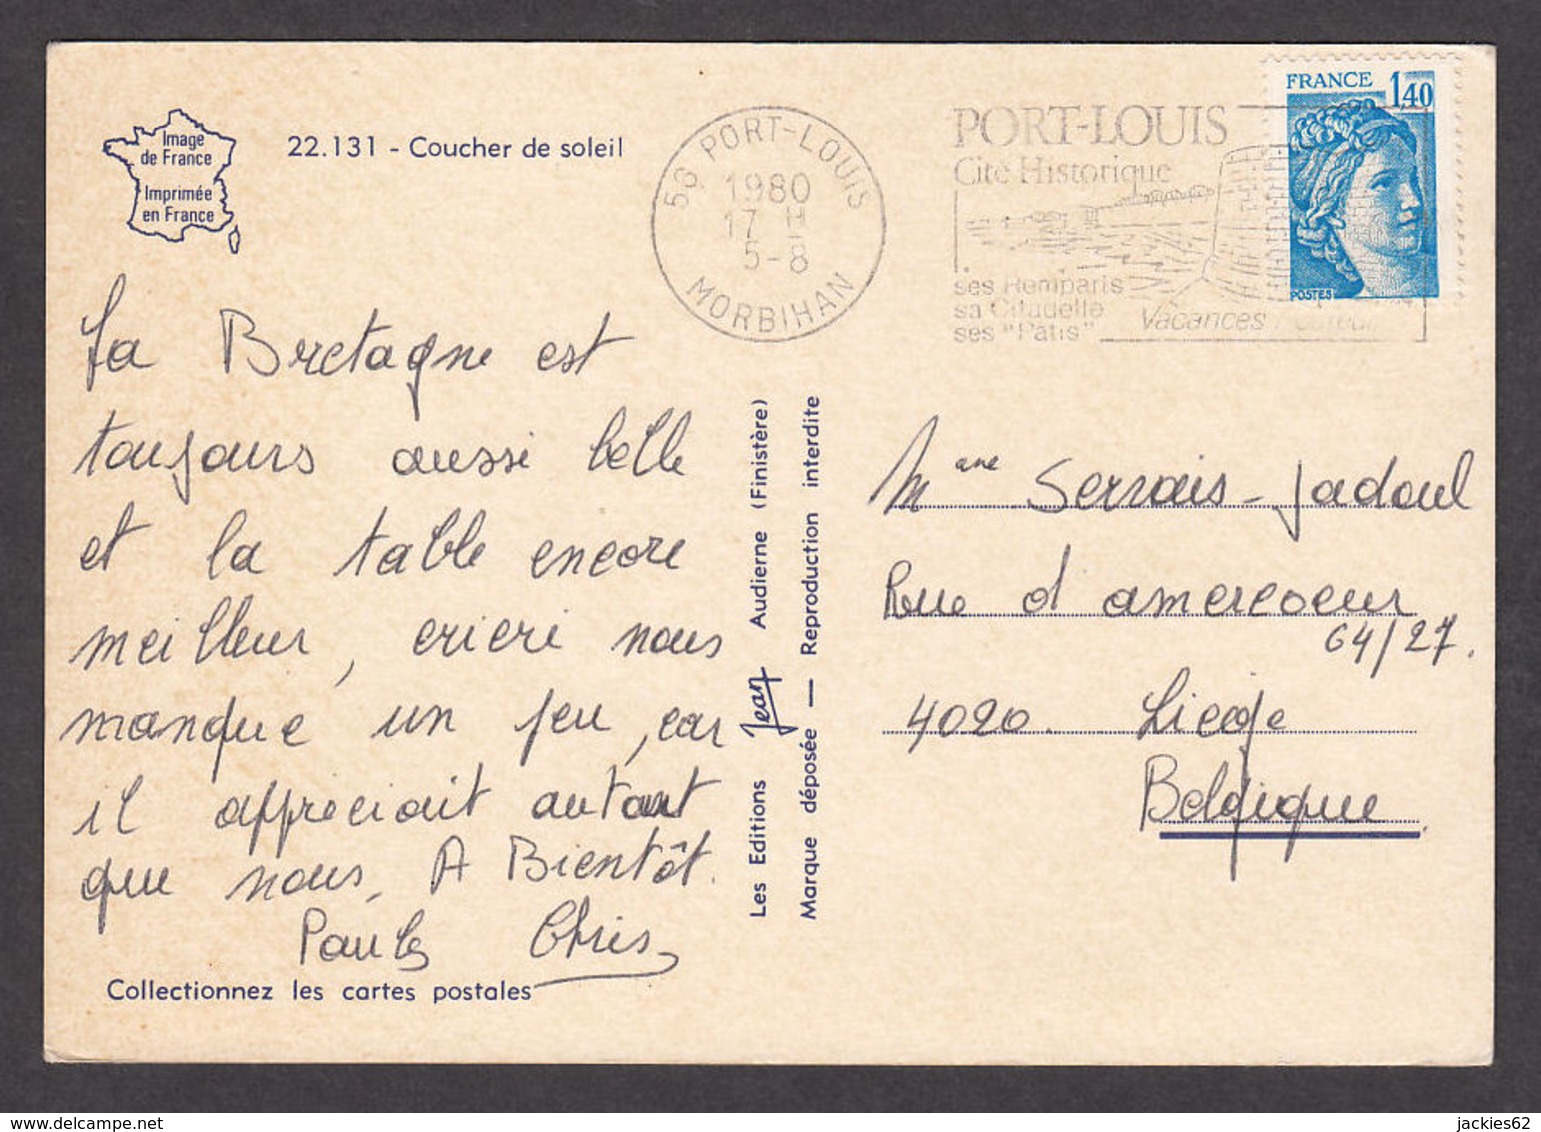 Image
de France
Imprimée
en France
22.131 - Coucher de soleil
56 PORT-LOUIS
1980
17 H
5-8
MORBIHAN
PORT-LOUIS
Cité Historique
ses Remparts
sa Citadelle
ses "Pâtis"
Vacances
FRANCE 1,40
POSTES
La Bretagne est
toujours aussi belle
et la table encore
meilleur, cricri nous
manque un peu, car
il appreciait autant
que nous. A Bientôt.
Chris
Collectionnez les cartes postales
Les Editions Jean Audierne (Finistère)
Marque déposée — Reproduction interdite
Servais-Jadoul
Rue d'amercoeur
64/27.
4020. Liège
Belgique
jackies62